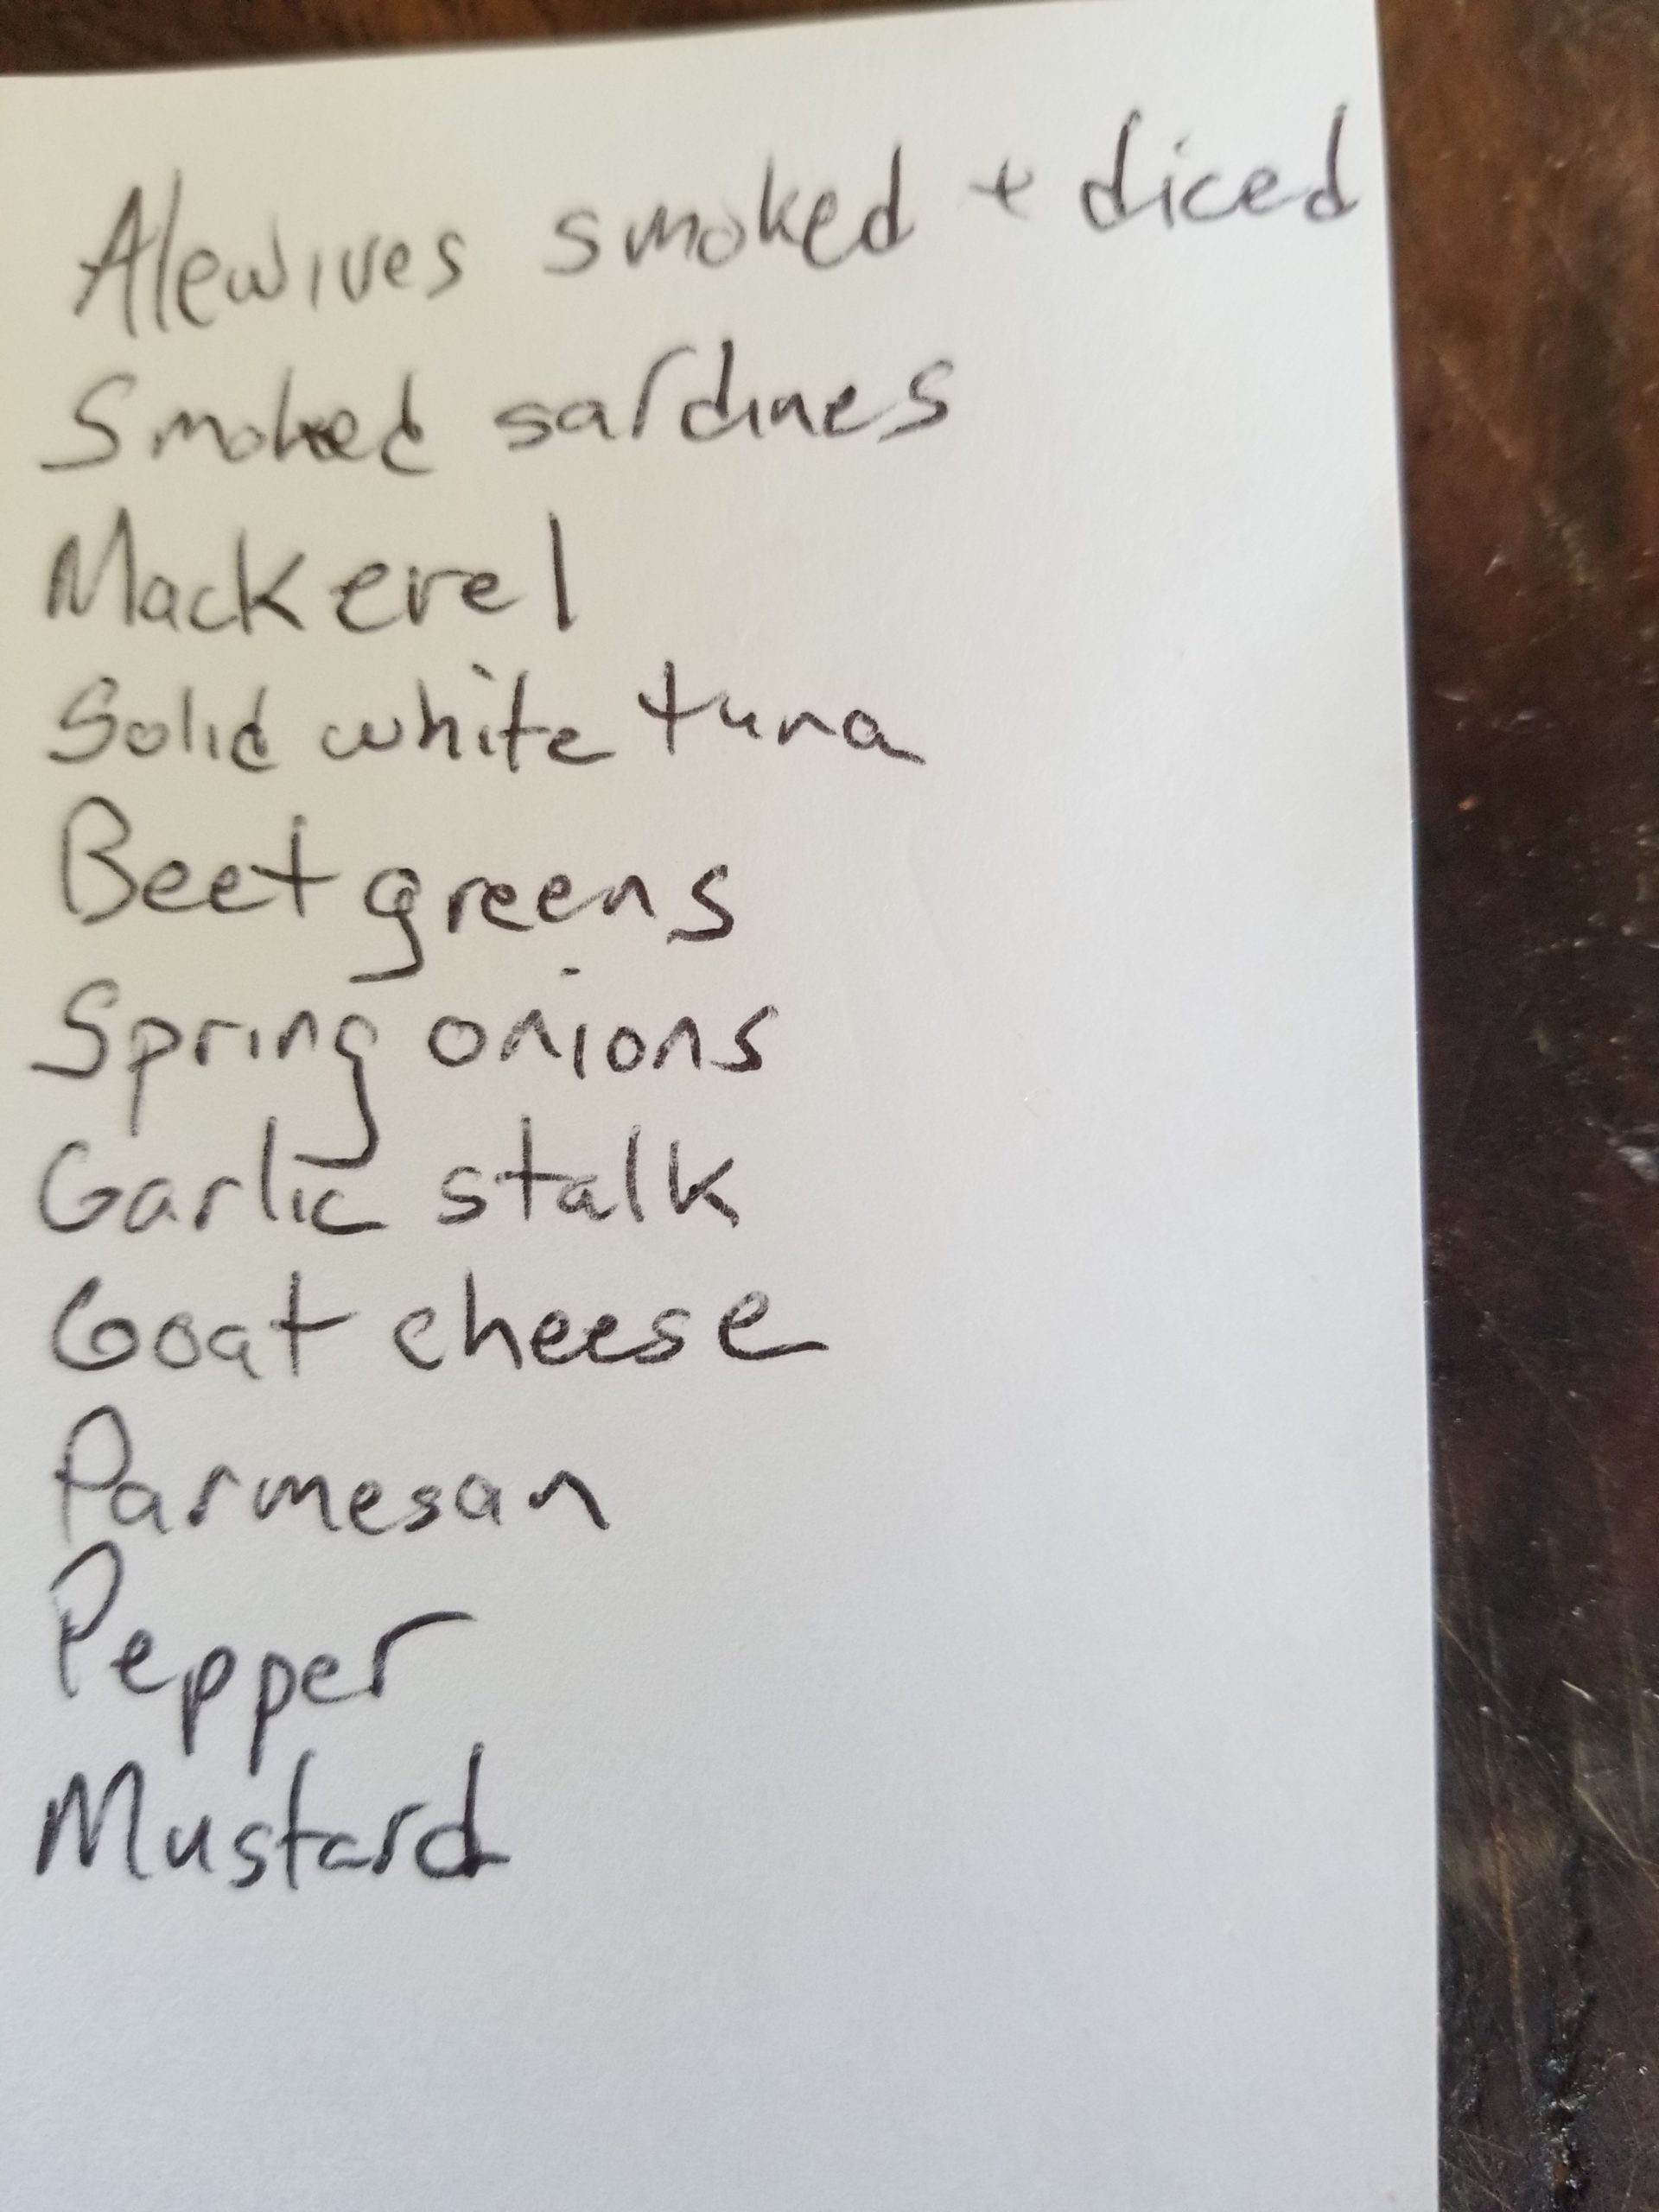 Alewives smoked + diced
Smoked sardines
Mackerel
Solid white tuna
Beet greens
Spring onions
Garlic stalk
Goat cheese
Parmesan
Pepper
Mustard